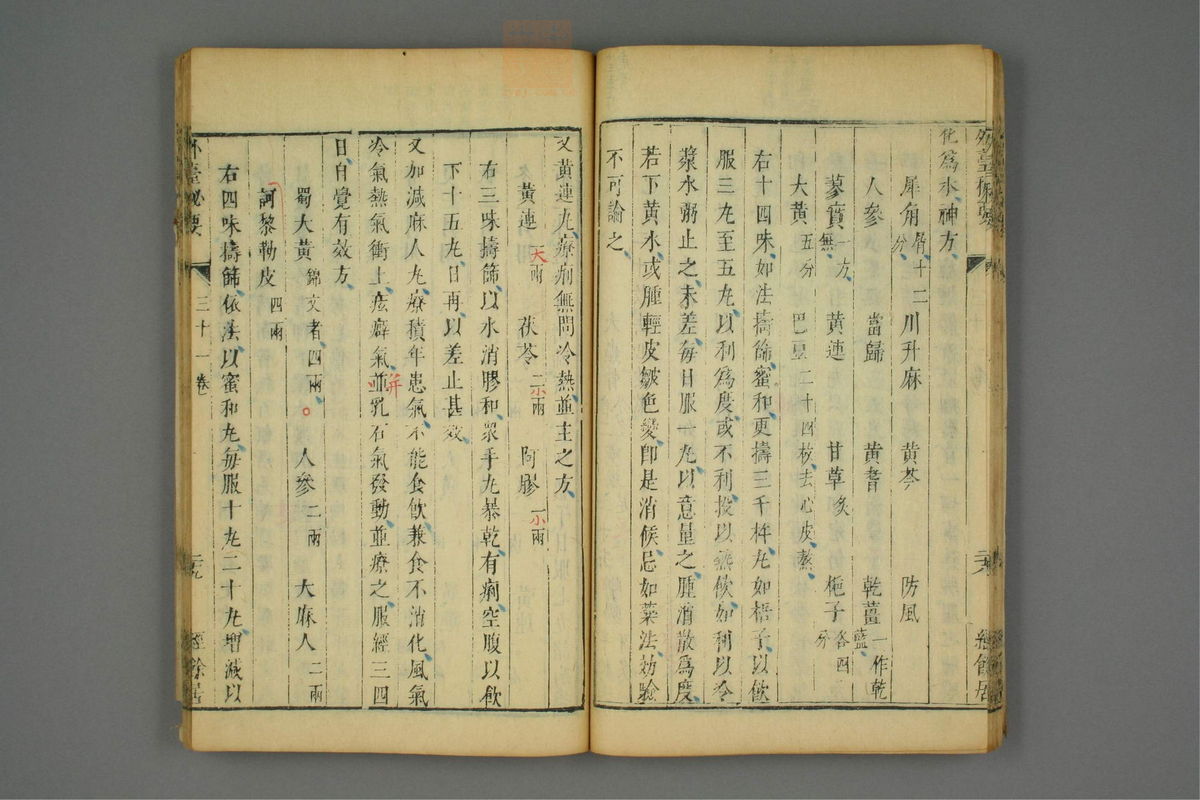 外臺秘要
二十八
經餘居
化為水神方
犀角屑十二分 川升麻 黃芩 防風
人參 當歸 黃耆 乾薑一作乾藍
蓼實一方無 黃連 甘草炙 梔子各四分
大黃五分 巴豆二十四枚去心皮熬
右十四味如法擣篩蜜和更擣三千杵丸如梧子以飲
服三丸至五丸以利為度或不利投以熱飲如利以冷
漿水粥止之未差每日服一丸以意量之腫消散為度
若下黃水或腫輕皮皺色變即是消候忌如藥法効驗
不可論之
又黃連丸療痢無問冷熱並主之方
黃連一大兩 茯苓二小兩 阿膠一小兩
右三味擣篩以水消膠和眾手丸暴乾有痢空腹以飲
下十五丸日再以差止甚效
又加減麻人丸療積年患氣不能食飲兼食不消化風氣
冷氣熱氣衝上痃癖氣並乳石氣發動並療之服經三四
并
日自覺有效方
蜀大黃錦文者四兩 人參二兩 大麻人二兩
訶黎勒皮四兩
右四味擣篩依法以蜜和丸每服十丸二十丸增減以
外臺秘要
三十一卷
二十九
經餘居